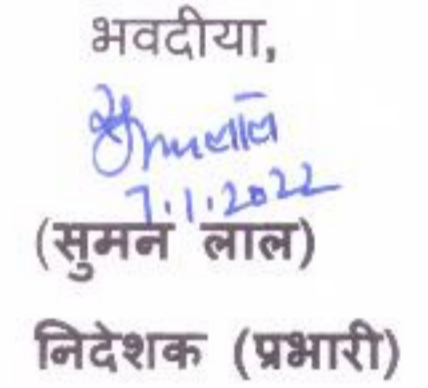 भवदीया,
सुमन लाल
7.1.2022
(सुमन लाल)
निदेशक (प्रभारी)